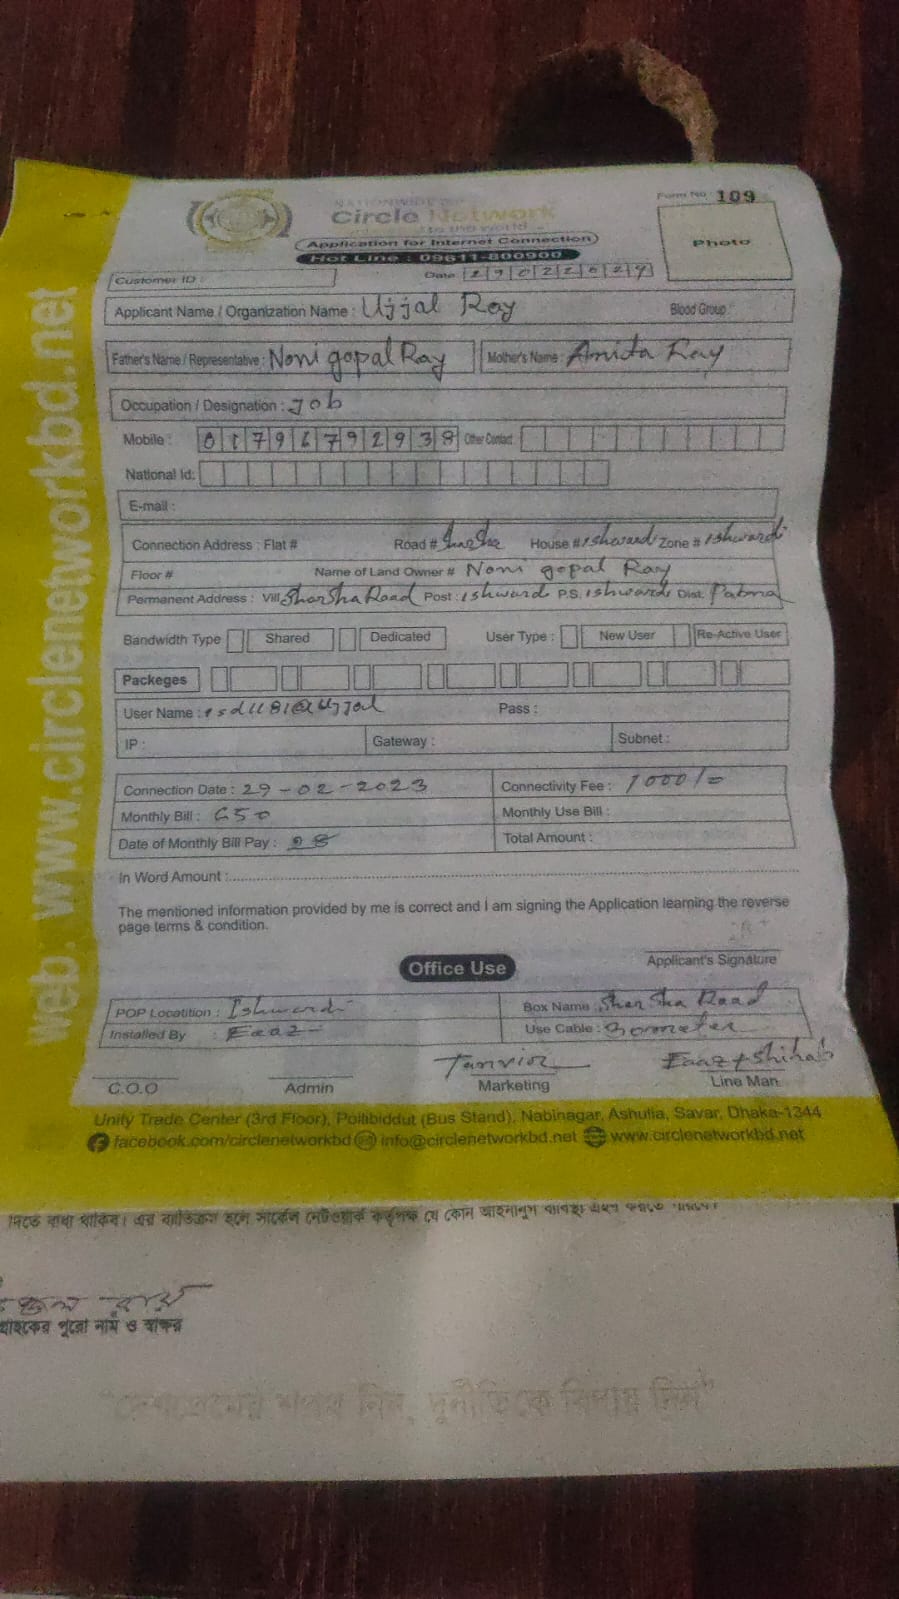 Form No : 109
NATIONWIDE ISP
Circle Network
to the world
Application for Internet Connection
Hot Line : 09611-800900
Photo
Customer ID :
Date 29022024
Applicant Name / Organization Name : Ujjal Ray Blood Group :
Father's Name / Representative : Noni gopal Ray Mother's Name : Amita Ray
Occupation / Designation : Job
Mobile : 01796792938 Other Contact
National Id:
E-mail :
Connection Address : Flat # Road # SherSha House # ishwardi Zone # ishwardi
Floor # Name of Land Owner # Noni gopal Ray
Permanent Address : Vill: SherSha Road Post : ishwardi P.S. ishwardi Dist. Pabna
Bandwidth Type Shared Dedicated User Type : New User Re-Active User
Packeges
User Name : isd1181@Ujjal Pass :
IP : Gateway : Subnet :
Connection Date : 29-02-2023 Connectivity Fee : 1000/=
Monthly Bill : 650 Monthly Use Bill :
Date of Monthly Bill Pay : Total Amount :
In Word Amount :
The mentioned information provided by me is correct and I am signing the Application learning the reverse
page terms & condition.
Applicant's Signature
Office Use
POP Locatition : Ishwardi Box Name : SherSha Road
Installed By : Eaaz Use Cable :
C.O.O Admin Tanvir Marketing Eaaz + Shihab Line Man
Unity Trade Center (3rd Floor), Pollibiddut (Bus Stand), Nabinagar, Ashulia, Savar, Dhaka-1344
facebook.com/circlenetworkbd info@circlenetworkbd.net www.circlenetworkbd.net
web: www.circlenetworkbd.net
দিতে বাধ্য থাকিব। এর ব্যতিক্রম হলে সার্কেল নেটওয়ার্ক কর্তৃপক্ষ যে কোন আইনানুগ ব্যবস্থা গ্রহণ করতে পারবে।
উজ্জল রায়
গ্রাহকের পুরো নাম ও স্বাক্ষর
"দেশপ্রেমের শপথ নিন, দুর্নীতিকে বিদায় দিন"